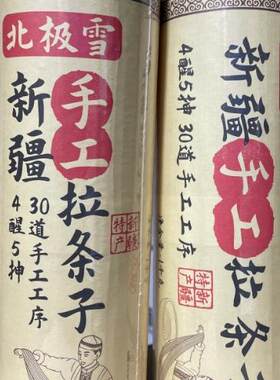 北极雪
新疆
手工
拉条子
30道手工工序
4醒5抻
新疆
特产
新疆手工拉条
4醒5抻 30道手工工序
新疆
特产